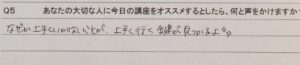 Q5 あなたの大切な人に今日の講座をオススメするとしたら、何と声をかけますか
なぜか上手くいかないひとが、上手く行く鍵が見つかるよ。